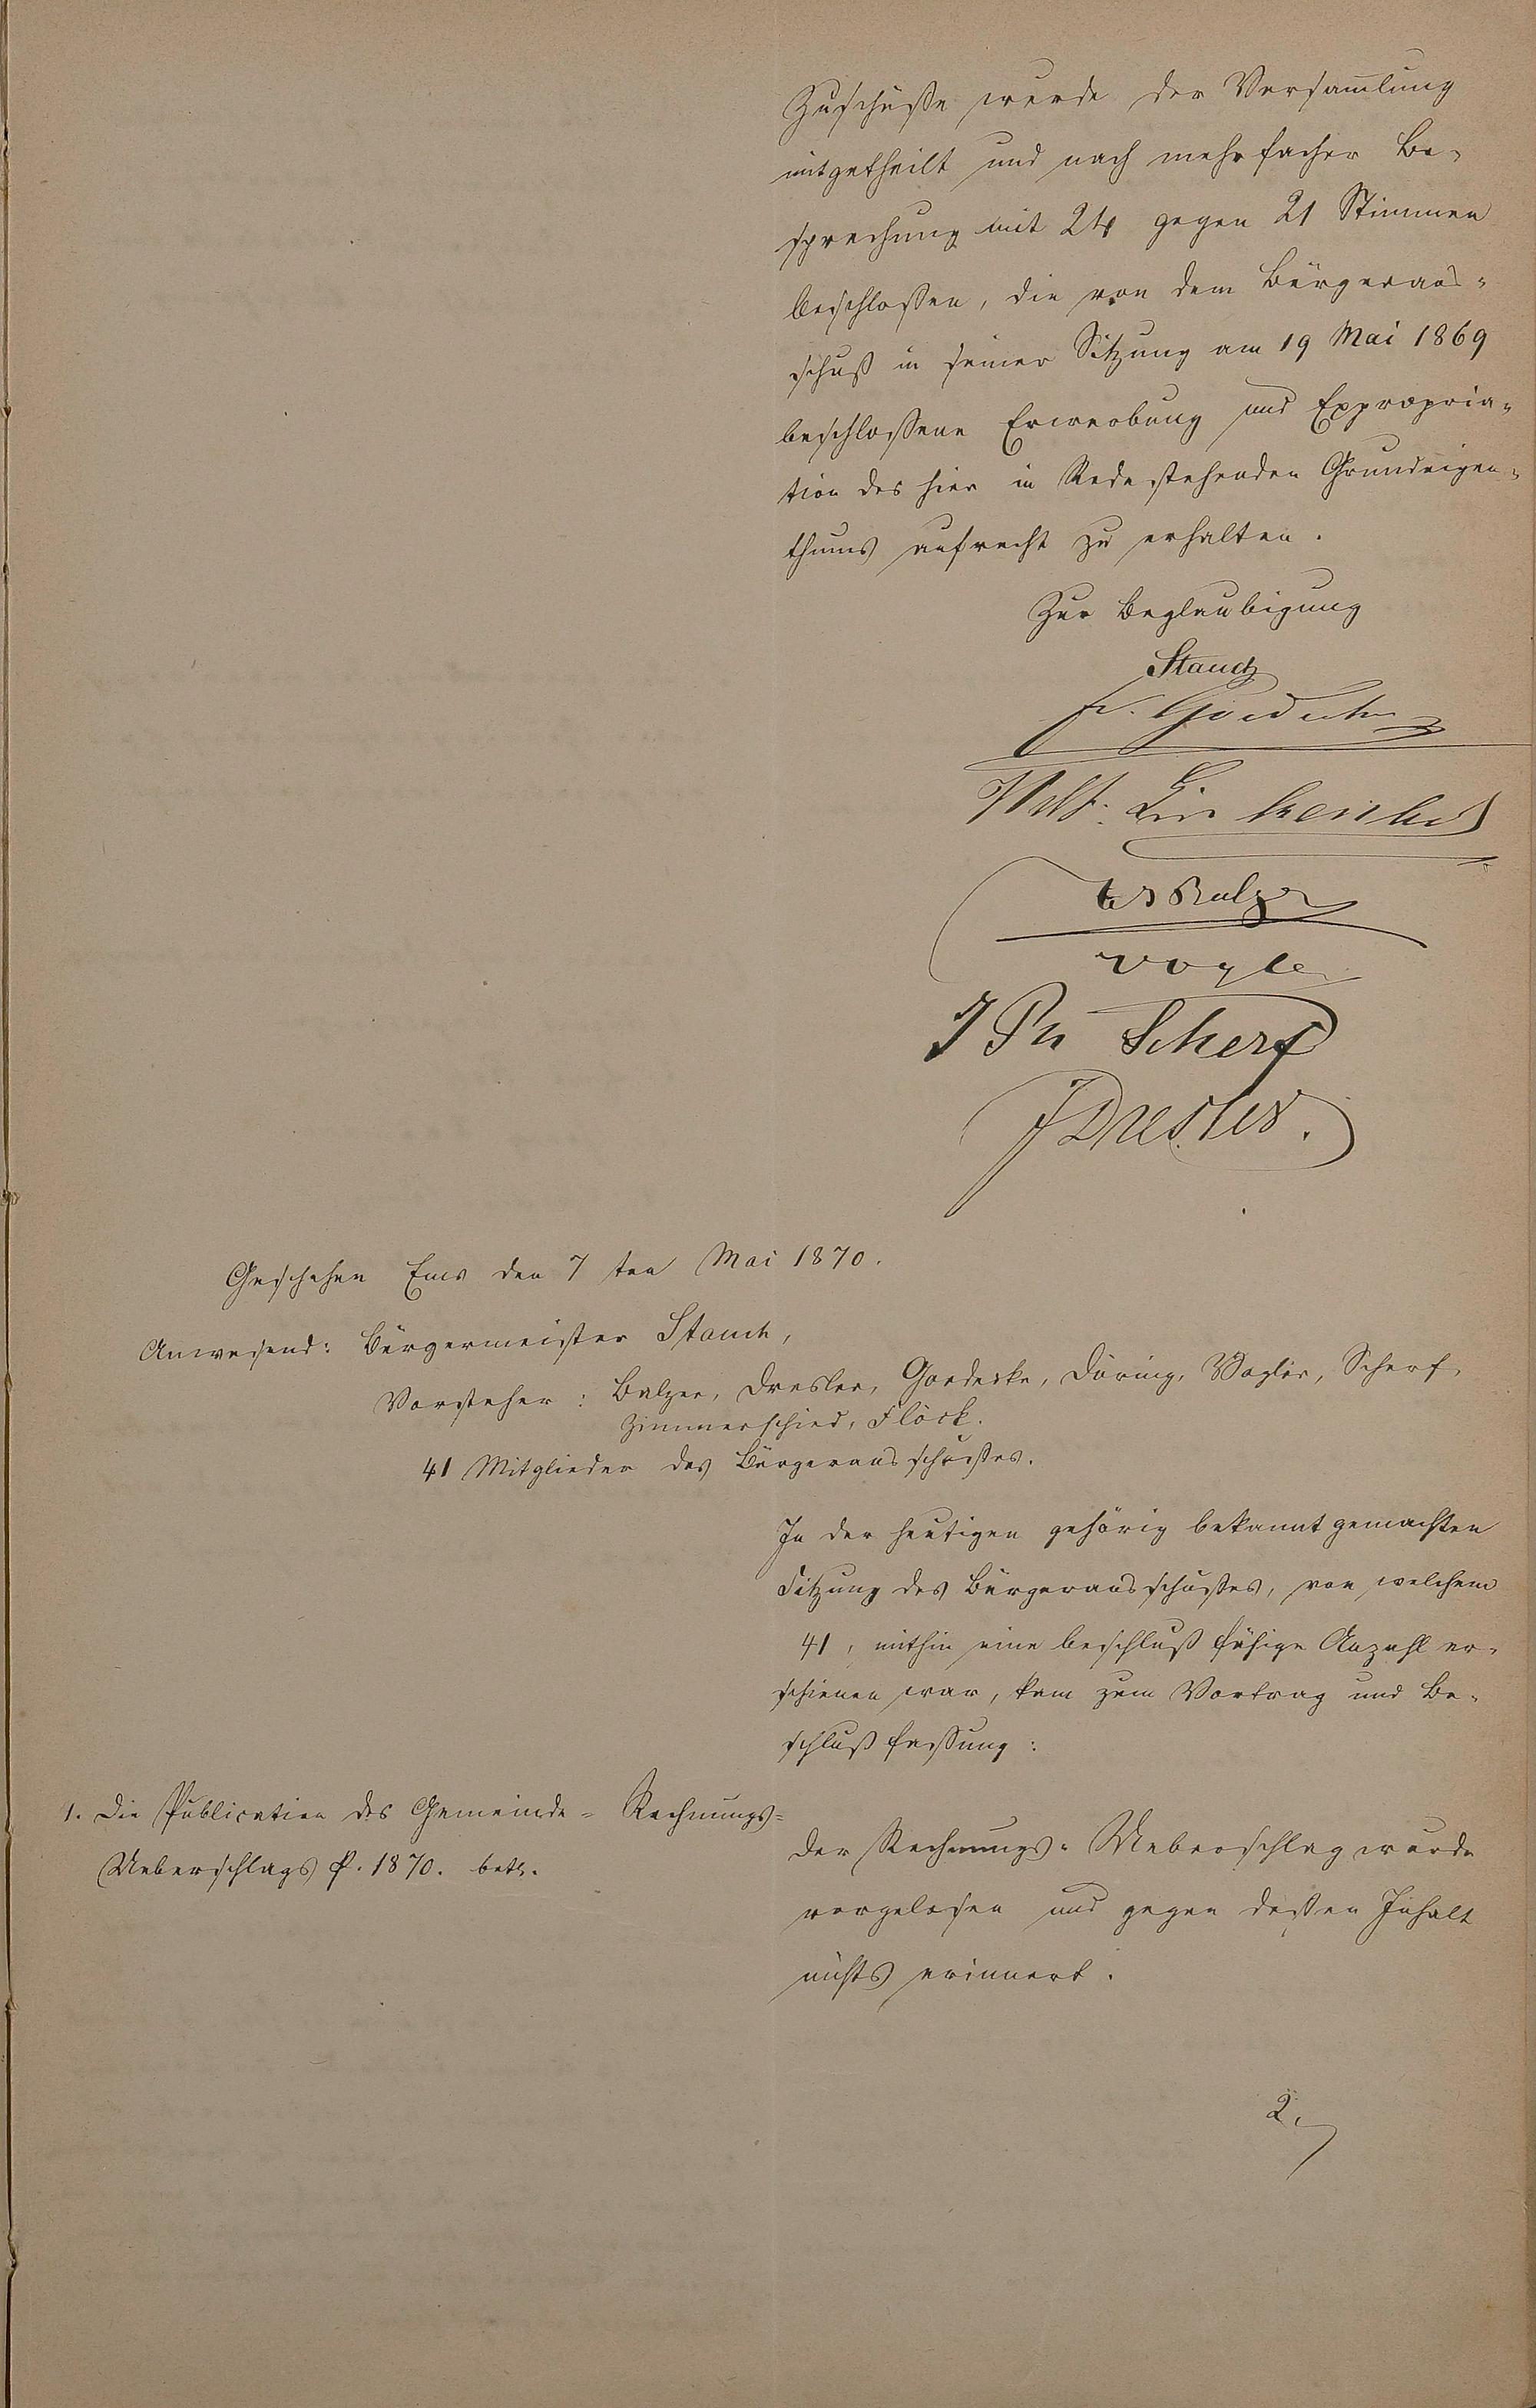 Zuschusse wurde der Versam̅lung
mitgetheilt und nach mehrfacher Be-
sprechung mit 24 gegen 21 Stimmen
beschloßen, die von dem Bürgeraus-
schuß in seiner Sitzung am 19 Mai 1869
beschloßene Erwerbung und Expropria-
tion des hier in Rede stehenden Grundeigen-
thums aufrecht zu erhalten.
Zur Beglaubigung
Stauch
F. Goedecke
Balzer
Vogler
J Ph Scherf
J Dresler.
Geschehen Ems den 7 ten Mai 1870.
Anwesend: Bürgermeister Stauch,
Vorsteher: Balzer, Dresler, Goedecke, Döring, Vogler, Scherf,
Zimmerschied, Flöck.
41 Mitglieder des Bürgerausschußes.
In der heutigen gehörig bekannt gemachten
Sitzung des Bürgerausschußes, von welchem
41, mithin eine beschluß fähige Anzahl er-
schienen war, kam zum Vortrag und Be-
schluß faßung:
1. Die Publication des Gemeinde- Rechnungs-
Ueberschlags p. 1870. betr.
Der Rechnungs-Ueberschlag wurde
vorgelesen und gegen deßen Inhalt
nichts erinnert.
2.